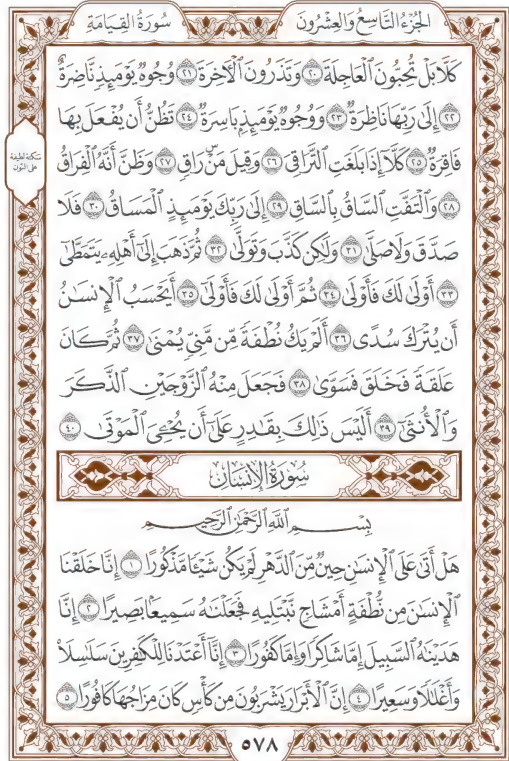 سُورَةُ القِيَامَةِ
الجُزْءُ التَّاسِعُ وَالعِشْرُونَ
كَلَّا بَلْ تُحِبُّونَ ٱلْعَاجِلَةَ ۝٢٠ وَتَذَرُونَ ٱلْأَخِرَةَ ۝٢١ وُجُوهٌ يَوْمَئِذٍ نَّاضِرَةٌ
۝٢٢ إِلَىٰ رَبِّهَا نَاظِرَةٌ ۝٢٣ وَوُجُوهٌ يَوْمَئِذٍۭ بَاسِرَةٌ ۝٢٤ تَظُنُّ أَن يُفْعَلَ بِهَا
فَاقِرَةٌ ۝٢٥ كَلَّآ إِذَا بَلَغَتِ ٱلتَّرَاقِيَ ۝٢٦ وَقِيلَ مَنْۜ رَاقٍ ۝٢٧ وَظَنَّ أَنَّهُ ٱلْفِرَاقُ
۝٢٨ وَٱلْتَفَّتِ ٱلسَّاقُ بِٱلسَّاقِ ۝٢٩ إِلَىٰ رَبِّكَ يَوْمَئِذٍ ٱلْمَسَاقُ ۝٣٠ فَلَا
صَدَّقَ وَلَا صَلَّىٰ ۝٣١ وَلَٰكِن كَذَّبَ وَتَوَلَّىٰ ۝٣٢ ثُمَّ ذَهَبَ إِلَىٰٓ أَهْلِهِۦ يَتَمَطَّىٰٓ
۝٣٣ أَوْلَىٰ لَكَ فَأَوْلَىٰ ۝٣٤ ثُمَّ أَوْلَىٰ لَكَ فَأَوْلَىٰٓ ۝٣٥ أَيَحْسَبُ ٱلْإِنسَٰنُ
أَن يُتْرَكَ سُدًى ۝٣٦ أَلَمْ يَكُ نُطْفَةً مِّن مَّنِيٍّ يُمْنَىٰ ۝٣٧ ثُمَّ كَانَ
عَلَقَةً فَخَلَقَ فَسَوَّىٰ ۝٣٨ فَجَعَلَ مِنْهُ ٱلزَّوْجَيْنِ ٱلذَّكَرَ
وَٱلْأُنثَىٰٓ ۝٣٩ أَلَيْسَ ذَٰلِكَ بِقَٰدِرٍ عَلَىٰٓ أَن يُحْـِۧيَ ٱلْمَوْتَىٰ ۝٤٠
سكتة لطيفة
على النون
سُورَةُ الإِنسَانِ
بِسْمِ ٱللَّهِ ٱلرَّحْمَٰنِ ٱلرَّحِيمِ
هَلْ أَتَىٰ عَلَى ٱلْإِنسَٰنِ حِينٌ مِّنَ ٱلدَّهْرِ لَمْ يَكُن شَيْـًٔا مَّذْكُورًا ۝١ إِنَّا خَلَقْنَا
ٱلْإِنسَٰنَ مِن نُّطْفَةٍ أَمْشَاجٍ نَّبْتَلِيهِ فَجَعَلْنَٰهُ سَمِيعًۢا بَصِيرًا ۝٢ إِنَّا
هَدَيْنَٰهُ ٱلسَّبِيلَ إِمَّا شَاكِرًا وَإِمَّا كَفُورًا ۝٣ إِنَّآ أَعْتَدْنَا لِلْكَٰفِرِينَ سَلَٰسِلَا۟
وَأَغْلَٰلًا وَسَعِيرًا ۝٤ إِنَّ ٱلْأَبْرَارَ يَشْرَبُونَ مِن كَأْسٍ كَانَ مِزَاجُهَا كَافُورًا ۝٥
٥٧٨